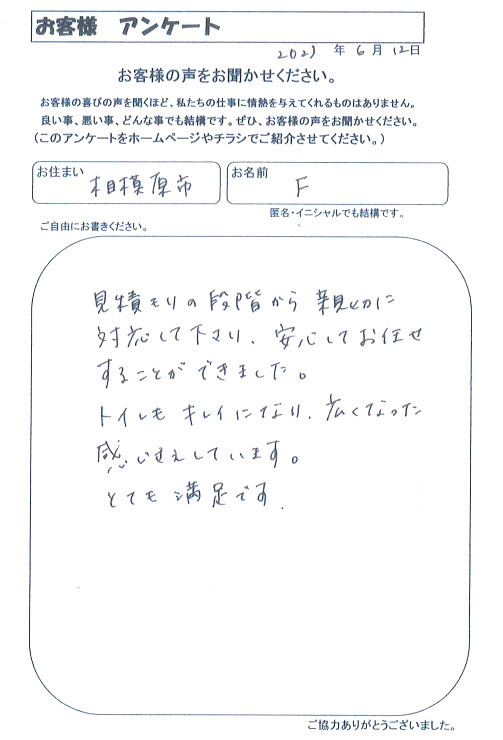 お客様 アンケート
2023 年 6 月 12日
お客様の声をお聞かせください。
お客様の喜びの声を聞くほど、私たちの仕事に情熱を与えてくれるものはありません。
良い事、悪い事、どんな事でも結構です。ぜひ、お客様の声をお聞かせください。
(このアンケートをホームページやチラシでご紹介させてください。)
お住まい 相模原市
お名前 F
匿名・イニシャルでも結構です。
ご自由にお書きください。
見積もりの段階から 親切に
対応して下さり、安心してお任せ
することができました。
トイレも キレイになり、広くなった
感じさえしています。
とても 満足です.
ご協力ありがとうございました。